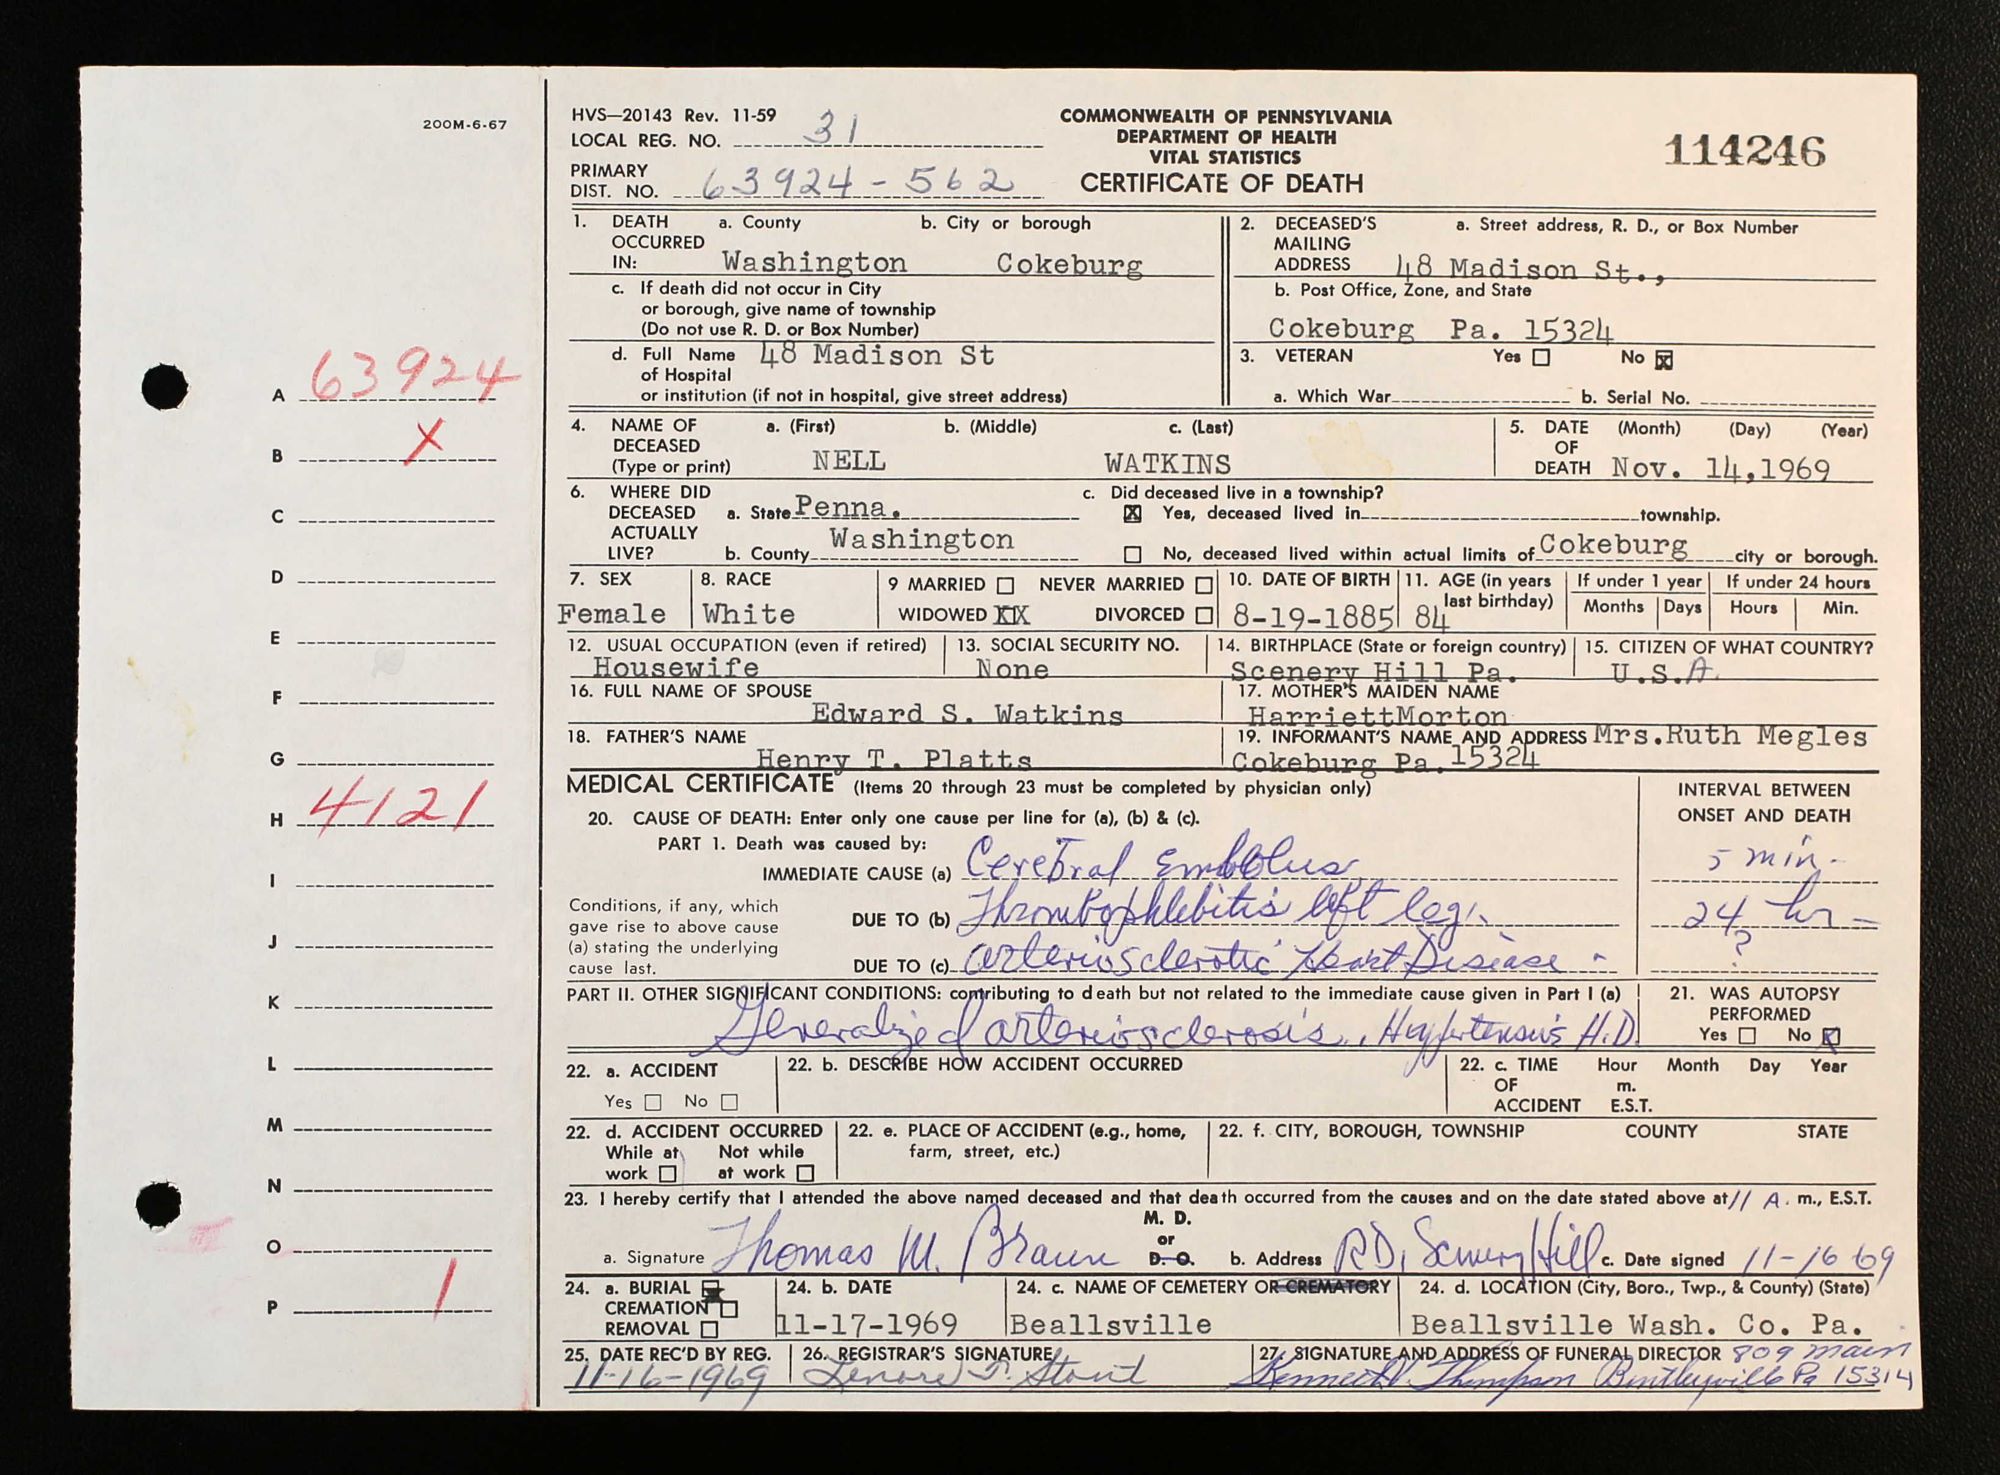 200M-6-67
HVS—20143 Rev. 11-59
LOCAL REG. NO. 31
PRIMARY
DIST. NO. 63924-562
COMMONWEALTH OF PENNSYLVANIA
DEPARTMENT OF HEALTH
VITAL STATISTICS
CERTIFICATE OF DEATH
114246
1. DEATH OCCURRED IN: a. County b. City or borough
Washington Cokeburg
c. If death did not occur in City
or borough, give name of township
(Do not use R. D. or Box Number)
d. Full Name 48 Madison St
of Hospital
or institution (if not in hospital, give street address)
2. DECEASED'S MAILING ADDRESS a. Street address, R. D., or Box Number
48 Madison St.,
b. Post Office, Zone, and State
Cokeburg Pa. 15324
3. VETERAN Yes ☐ No ☒
a. Which War b. Serial No.
4. NAME OF DECEASED (Type or print) a. (First) b. (Middle) c. (Last)
NELL WATKINS
5. DATE OF DEATH (Month) (Day) (Year)
Nov. 14,1969
6. WHERE DID DECEASED ACTUALLY LIVE? a. State Penna.
b. County Washington
c. Did deceased live in a township?
☒ Yes, deceased lived in township.
☐ No, deceased lived within actual limits of Cokeburg city or borough.
7. SEX
Female
8. RACE
White
9 MARRIED ☐ NEVER MARRIED ☐
WIDOWED XX DIVORCED ☐
10. DATE OF BIRTH
8-19-1885
11. AGE (in years last birthday)
84
If under 1 year
Months Days
If under 24 hours
Hours Min.
12. USUAL OCCUPATION (even if retired)
Housewife
13. SOCIAL SECURITY NO.
None
14. BIRTHPLACE (State or foreign country)
Scenery Hill Pa.
15. CITIZEN OF WHAT COUNTRY?
U.S.A.
16. FULL NAME OF SPOUSE
Edward S. Watkins
17. MOTHER'S MAIDEN NAME
HarriettMorton
18. FATHER'S NAME
Henry T. Platts
19. INFORMANT'S NAME AND ADDRESS Mrs.Ruth Megles
Cokeburg Pa. 15324
MEDICAL CERTIFICATE (Items 20 through 23 must be completed by physician only)
INTERVAL BETWEEN
ONSET AND DEATH
20. CAUSE OF DEATH: Enter only one cause per line for (a), (b) & (c).
PART 1. Death was caused by:
IMMEDIATE CAUSE (a) Cerebral Embolus 5 min.
Conditions, if any, which
gave rise to above cause
(a) stating the underlying
cause last.
DUE TO (b) Thrombophlebitis left leg. 24 hr
DUE TO (c) Arteriosclerotic Heart Disease - ?
PART II. OTHER SIGNIFICANT CONDITIONS: contributing to death but not related to the immediate cause given in Part I (a)
Generalized arteriosclerosis, Hypertensive H.D.
21. WAS AUTOPSY
PERFORMED
Yes ☐ No ☒
22. a. ACCIDENT
Yes ☐ No ☐
22. b. DESCRIBE HOW ACCIDENT OCCURRED
22. c. TIME OF ACCIDENT Hour Month Day Year
m.
E.S.T.
22. d. ACCIDENT OCCURRED
While at work ☐ Not while at work ☐
22. e. PLACE OF ACCIDENT (e.g., home,
farm, street, etc.)
22. f. CITY, BOROUGH, TOWNSHIP COUNTY STATE
23. I hereby certify that I attended the above named deceased and that death occurred from the causes and on the date stated above at 11 A. m., E.S.T.
a. Signature Thomas M. Braun M. D. or D. O. b. Address RD, Scenery Hill c. Date signed 11-16 69
24. a. BURIAL
CREMATION ☐
REMOVAL ☐
24. b. DATE
11-17-1969
24. c. NAME OF CEMETERY OR CREMATORY
Beallsville
24. d. LOCATION (City, Boro., Twp., & County) (State)
Beallsville Wash. Co. Pa.
25. DATE REC'D BY REG.
11-16-1969
26. REGISTRAR'S SIGNATURE
Lenore Stout
27. SIGNATURE AND ADDRESS OF FUNERAL DIRECTOR 809 Main
Kenneth V. Thompson Bentleyville Pa 15314
A 63924
B X
C
D
E
F
G
H 4121
I
J
K
L
M
N
O
P 1